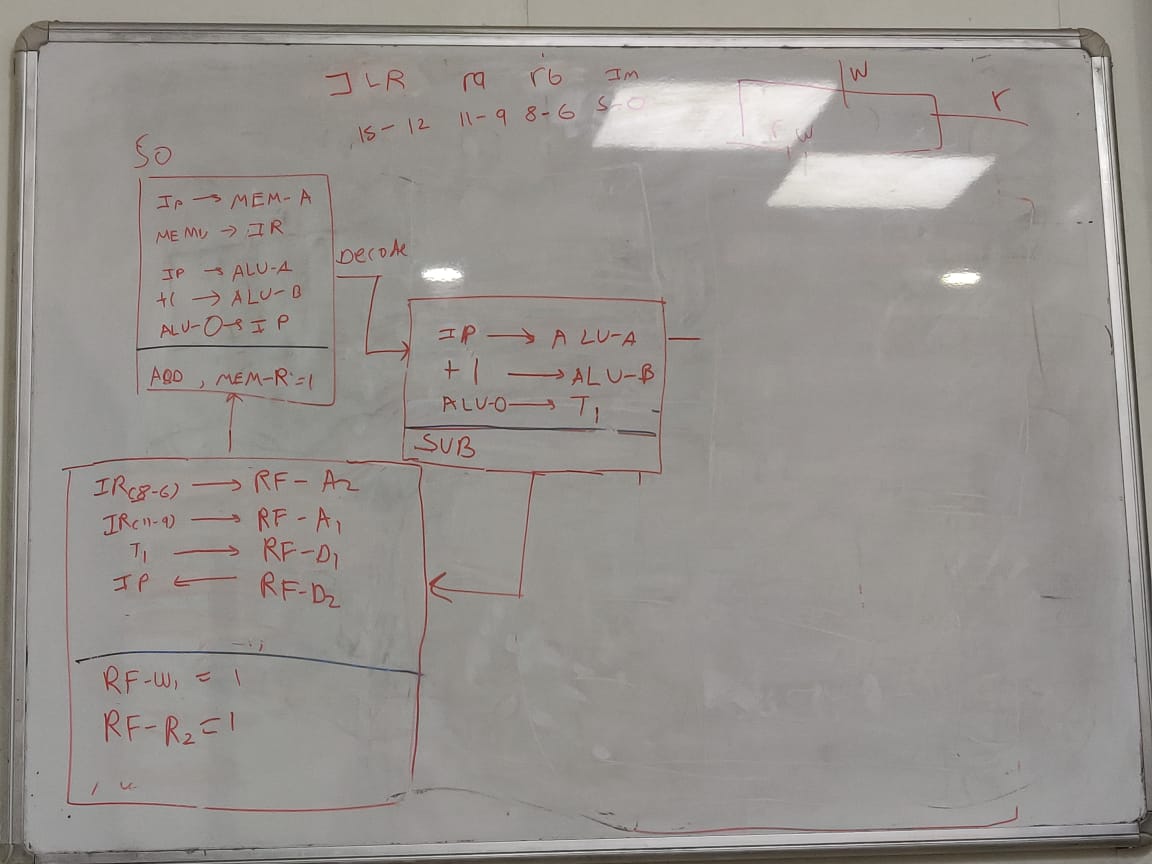 JLR ra rb Im
15-12 11-9 8-6 5-0
W
r
r, w
S0
IP → MEM-A
MEMD → IR
IP → ALU-A
+1 → ALU-B
ALU-O → IP
ADD, MEM-R=1
DECODE
IP → ALU-A
+1 → ALU-B
ALU-O → T1
SUB
IR(8-6) → RF-A2
IR(11-9) → RF-A1
T1 → RF-D1
IP ← RF-D2
RF-W1 = 1
RF-R2=1